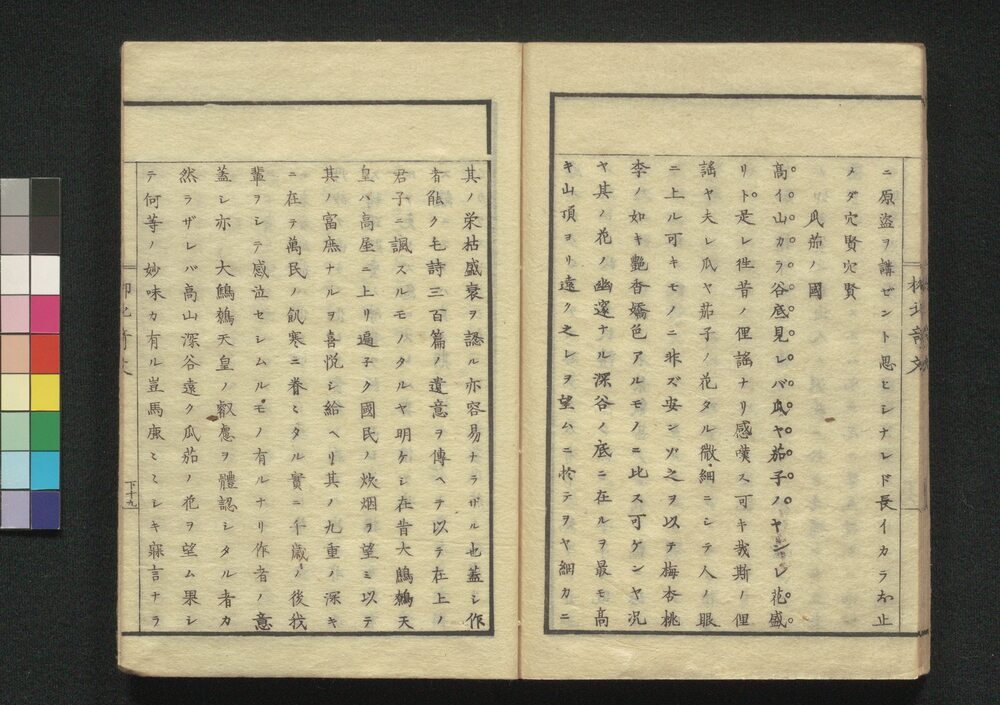 ニ原盗ヲ講ゼント思ヒシナレド長イカラお止
メダ穴賢穴賢
瓜茄ノ國
高イ山カラ谷底見レバ瓜ヤ茄子ノヤンレ花盛
リト是レ徃昔ノ俚謡ナリ感嘆ス可キ哉斯ノ俚
謡ヤ夫レ瓜ヤ茄子ノ花タル微細ニシテ人ノ眼
ニ上ル可キモノニ非ズ安ンゾ之ヲ以テ梅杏桃
李ノ如キ艶香嬌色アルモノニ比ス可ケンヤ况
ヤ其ノ花ノ幽邃ナル深谷ノ底ニ在ルヲ最モ高
キ山頂ヨリ遠ク之レヲ望ムニ於テヲヤ細カニ
其ノ栄枯盛衰ヲ認ル亦容易ナラザル也蓋シ作
者能ク毛詩三百篇ノ遺意ヲ傳ヘテ以テ在上ノ
君子ニ諷スルモノタルヤ明ケシ在昔大鷦鷯天
皇ハ高屋ニ上リ遍子ク國民ノ炊烟ヲ望ミ以テ
其ノ富庶ナルヲ喜悦シ給ヘリ其ノ九重ノ深キ
ニ在テ萬民ノ飢寒ニ眷ミタル實ニ千歳ノ後我
輩ヲシテ感泣セシムルモノ有ルナリ作者ノ意
蓋シ亦 大鷦鷯天皇ノ叡慮ヲ體認シタル者カ
然ラザレバ高山深谷遠ク瓜茄ノ花ヲ望ム果シ
テ何等ノ妙味カ有ル豈馬鹿ミミシキ寐言ナラ
下十九